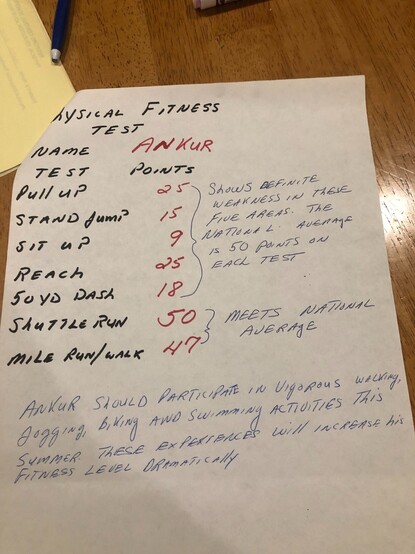 HYSICAL FITNESS
TEST
NAME ANKUR
TEST POINTS
PULL UP 25
STAND JUMP 15
SIT UP 9
REACH 25
50 YD DASH 18
SHOWS DEFINITE
WEAKNESS IN THESE
FIVE AREAS. THE
NATIONAL AVERAGE
IS 50 POINTS ON
EACH TEST
SHUTTLE RUN 50
MILE RUN/WALK 47
MEETS NATIONAL
AVERAGE
ANKUR SHOULD PARTICIPATE IN VIGOROUS WALKING,
JOGGING, BIKING AND SWIMMING ACTIVITIES THIS
SUMMER. THESE EXPERIENCES WILL INCREASE HIS
FITNESS LEVEL DRAMATICALLY